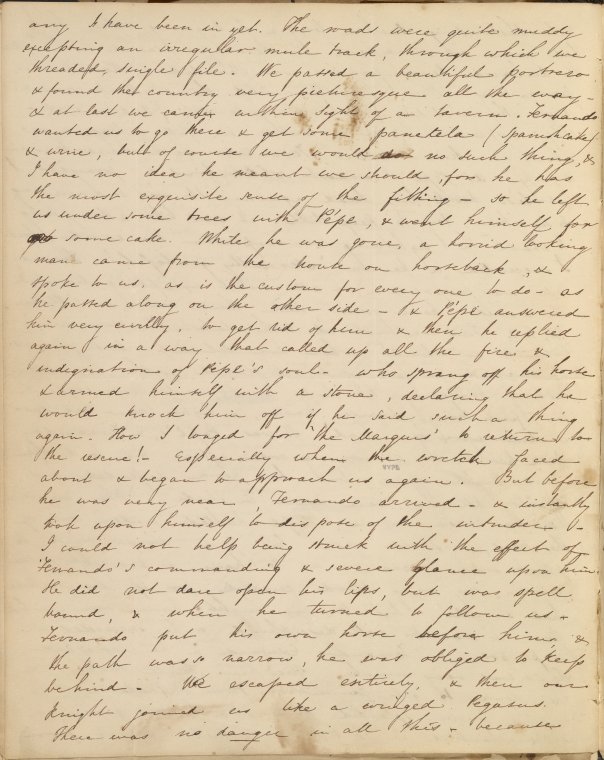 any I have been in yet. The roads were quite muddy
excepting an irregular mule track, through which we
threaded, single file. We passed a beautiful Pootrero
& found the country very picturesque all the way -
& at last we came within sight of a tavern. Fernando
wanted us to go there & get some panetela (Spanish cake)
& wine, but of course we would do no such thing, &
I have no idea he meant we should, for he has
the most exquisite sense of the fitting - so he left
us under some trees with Pépe, & went himself for
some cake. While he was gone, a horrid looking
man came from the house on horseback, &
spoke to us, as is the custom for every one to do - as
he passed along on the other side - & Pépe answered
him very civilly, to get rid of him & then he replied
again in a way that called up all the fire &
indignation of Pépe's soul - who sprang off his horse
& armed himself with a stone, declaring that he
would knock him off if he said such a thing
again. How I longed for "the Marquis" to return to
the rescue! - Especially when the wretch faced
about & began to approach us again. But before
he was very near Fernando arrived - & instantly
took upon himself to dispose of the intruder -
I could not help being struck with the effect of
Fernando's commanding & severe glance upon him.
He did not dare open his lips, but was spell
bound, & when he turned to follow us -
Fernando put his own horse before him, &
the path was so narrow, he was obliged to keep
behind - We escaped entirely, & then our
Knight joined us like a winged Pegasus.
There was no danger in all this - because